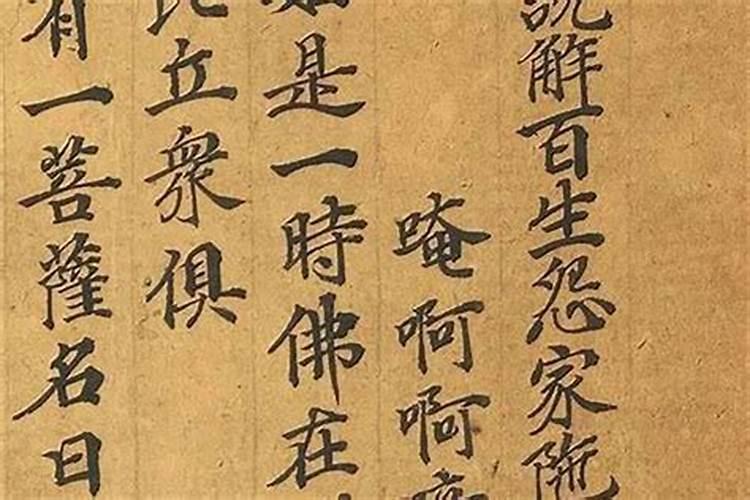 說觧百生怨家陁
唵啊啊
如是一時佛在
比立衆俱
有一菩薩名曰